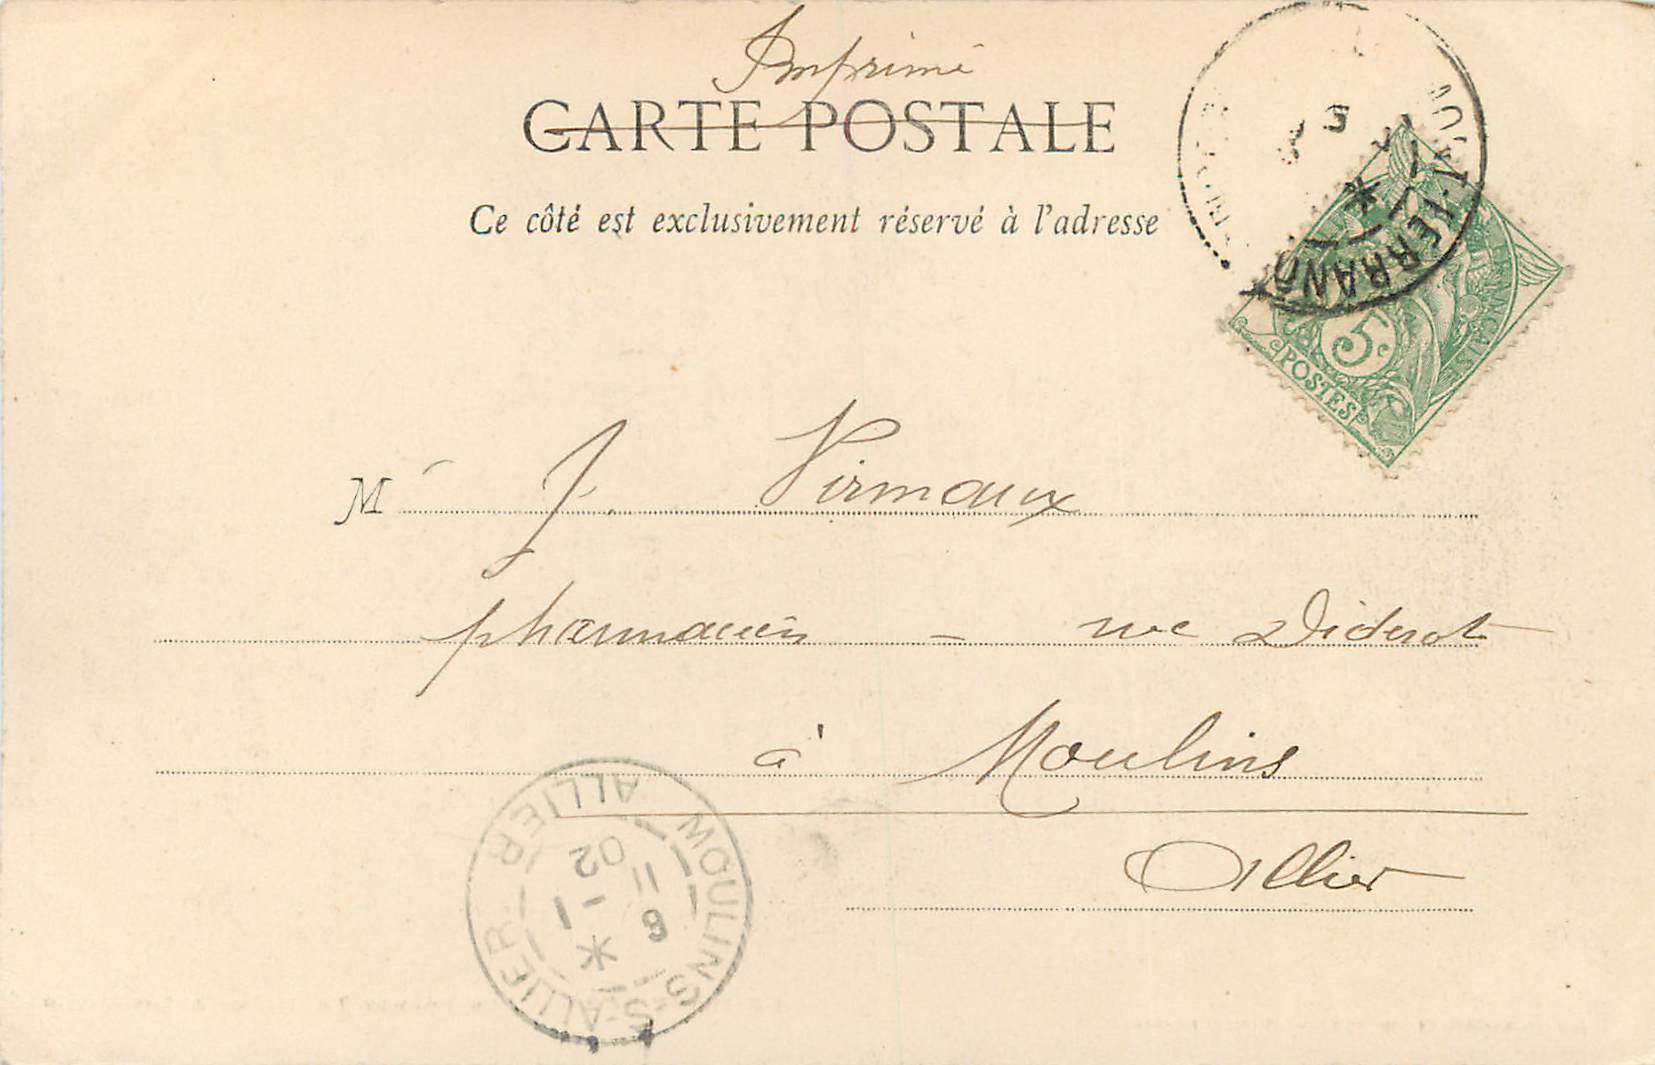 Imprimé
CARTE POSTALE
Ce côté est exclusivement réservé à l'adresse
FERRAND
FRANCAISE
5c
POSTES
M J. Virmaux
pharmacien - rue Diderot
à Moulins
Allier
MOULINS-S-ALLIER ALLIER
6
11
-1
02